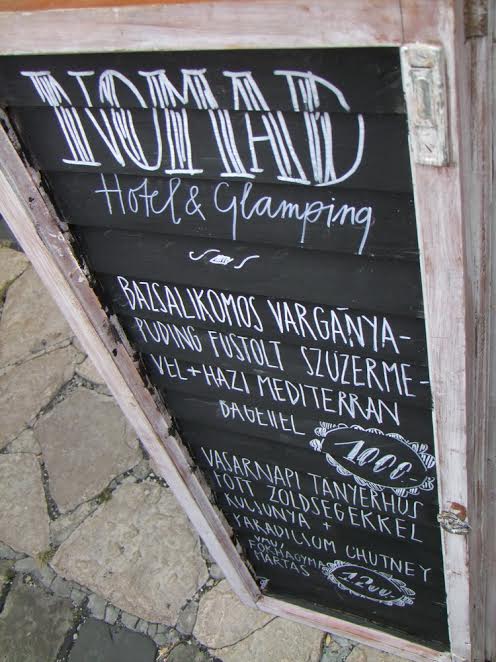 NOMAD
Hotel & Glamping
BAZSALIKOMOS VARGÁNYA-
PUDING FÜSTÖLT SZŰZÉRMÉ-
VEL + HÁZI MEDITERRÁN
BAGETTEL
1000-
VASÁRNAPI TÁNYÉRHÚS
FŐTT ZÖLDSÉGEKKEL
KULSONYA +
PARADICSOM CHUTNEY
VAGY
FOKHAGYMA
MÁRTÁS
1200-